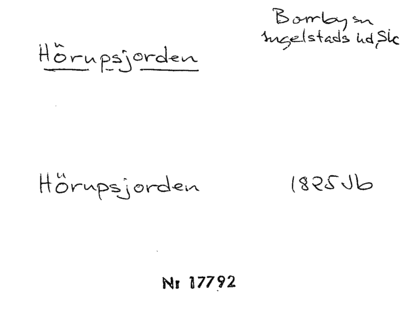 Hörupsjorden
Borrby sn
Ingelstads hd Sk
Hörupsjorden
1825 Jb
Nr 17792